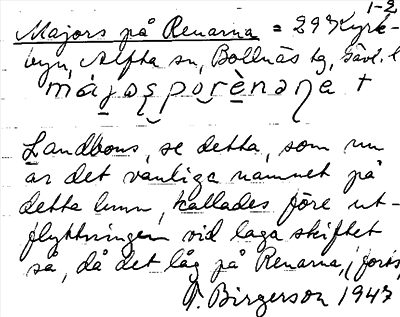 1-2
Majors på Renarna = 29 Kyrk-
byn, Alfta sn, Bollnäs tg, Gävl. l
májaspoṣrènana +
Landbons, se detta, som nu
är det vanliga namnet på
detta hem, kallades före ut-
flyttningen vid laga skiftet
så, då det låg på Renarna, (förs,
V. Birgerson 1947